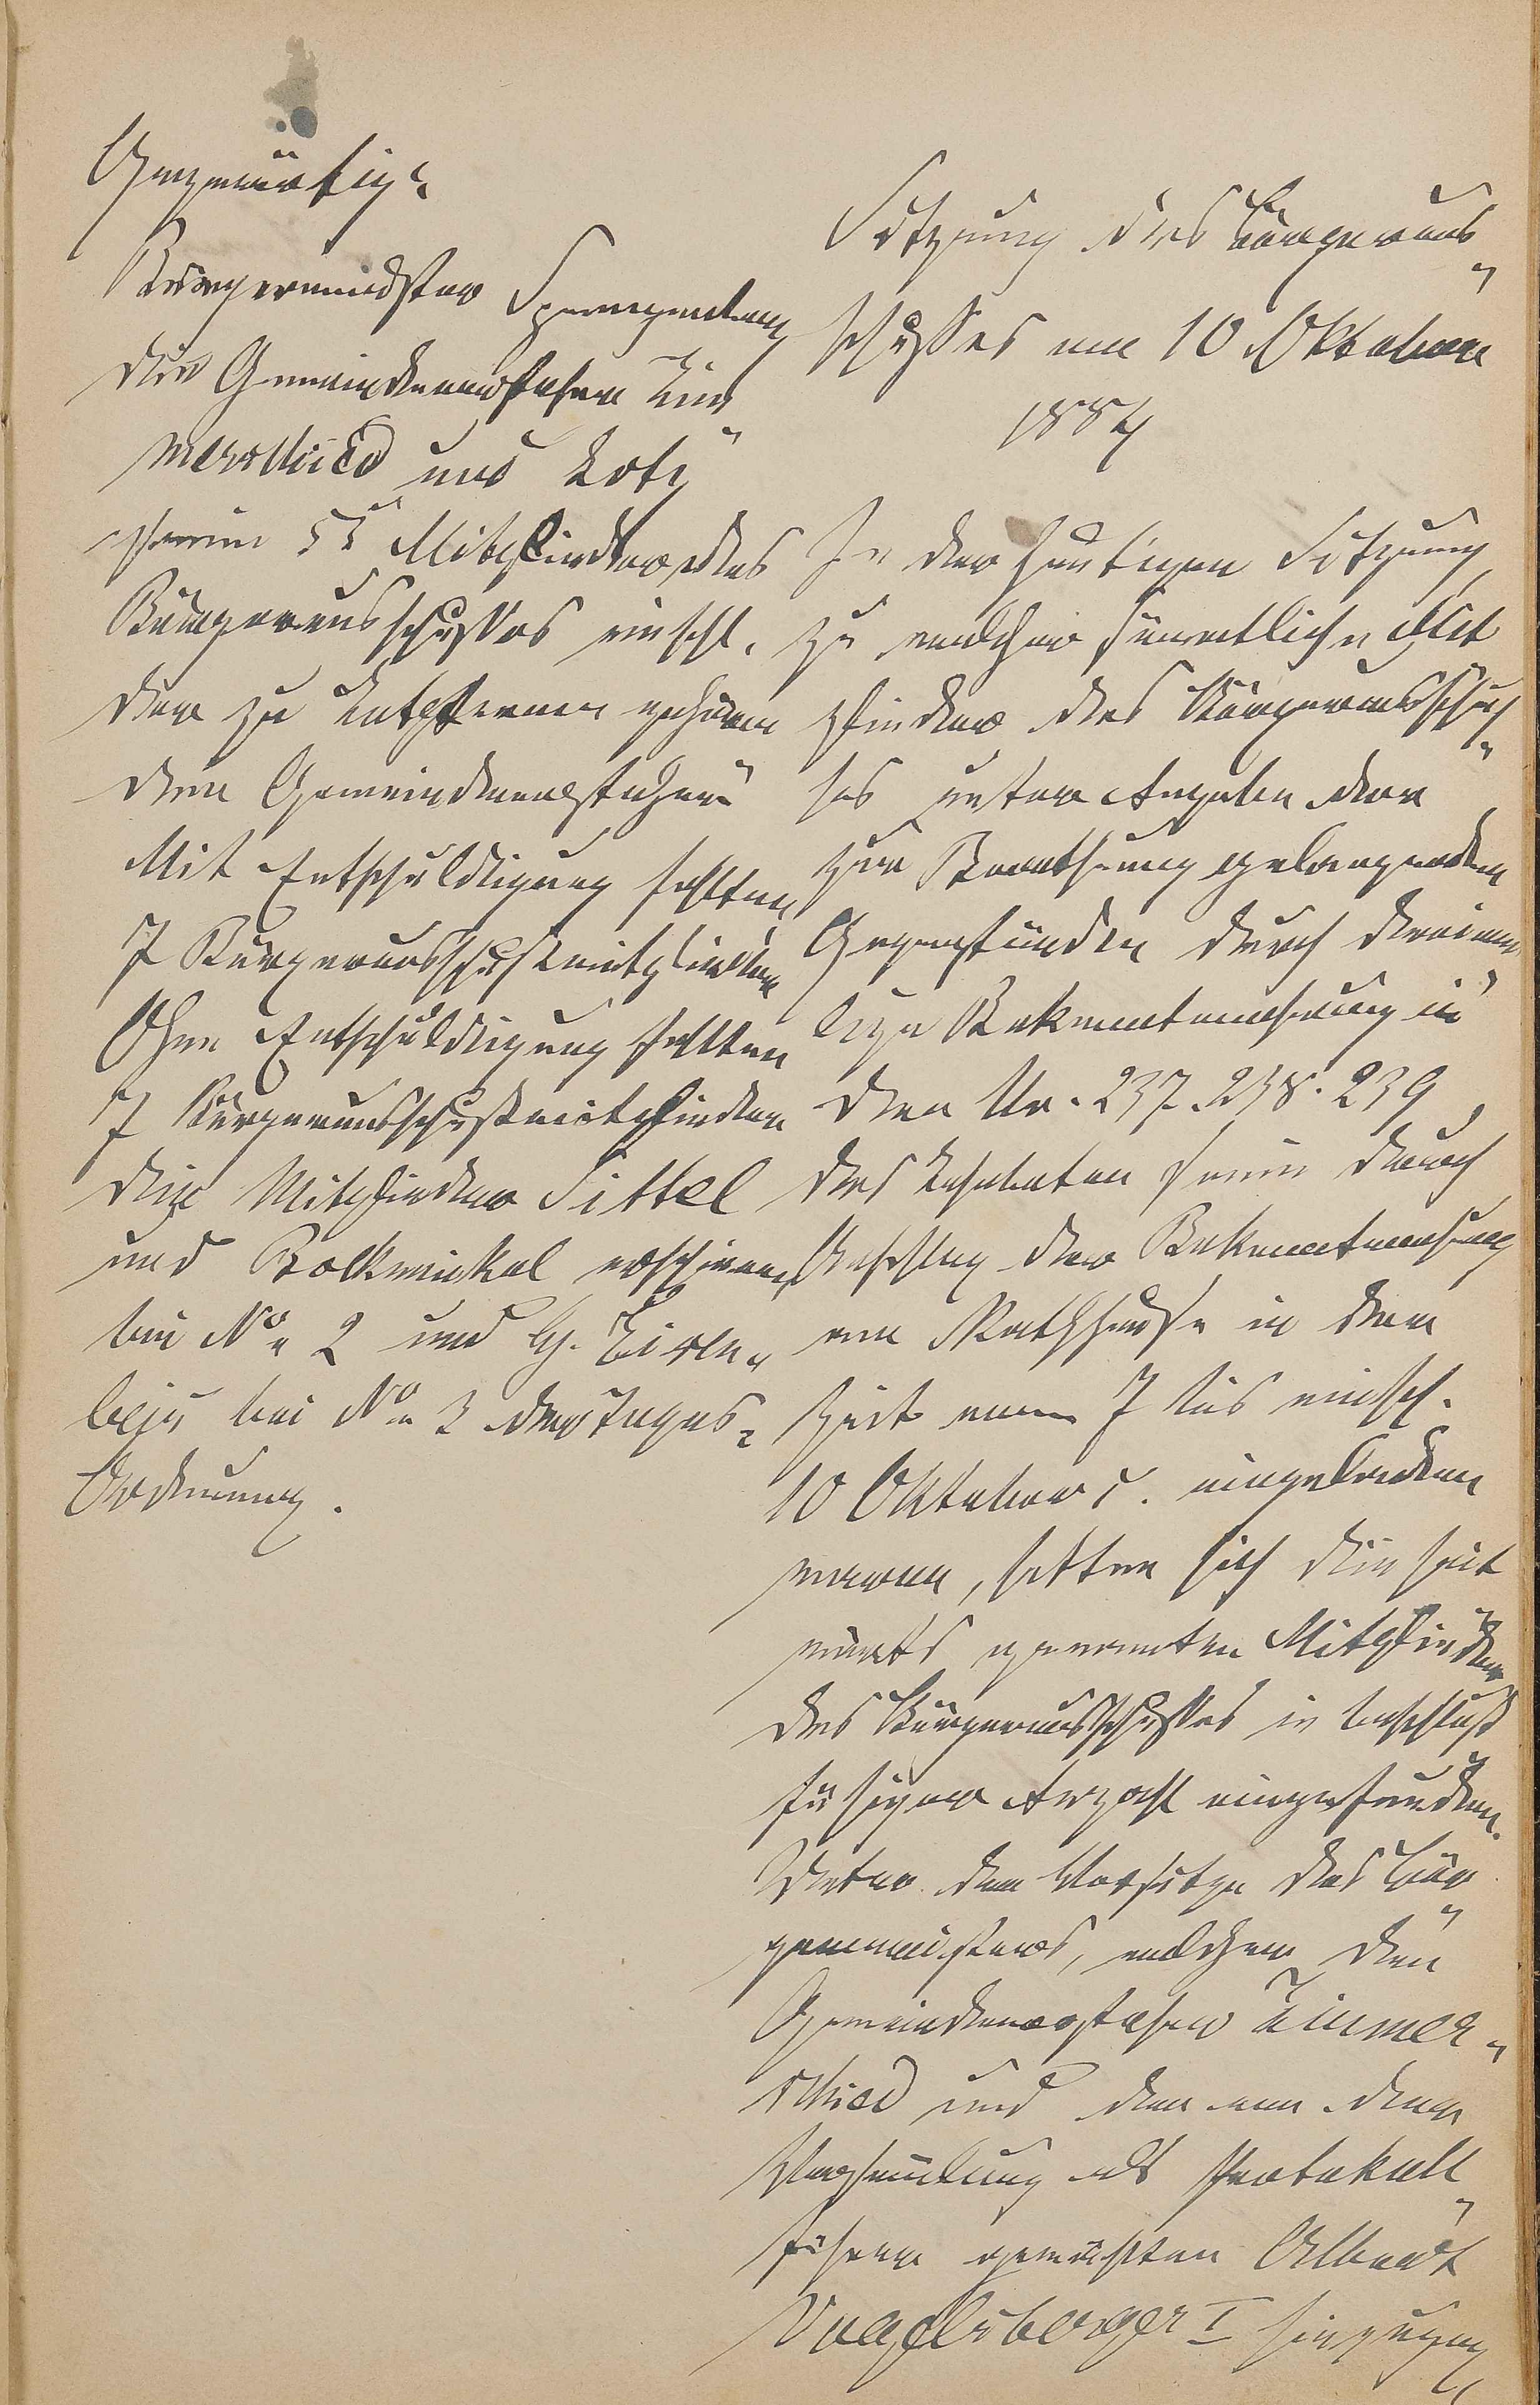 Gegenwärtig:
Bürgermeister Spangenberg
die Gemeindevorsteher Zim„
merschied und Lotz
sowie 55 Mitglieder des
Bürgerausschusses einschl.
der zu Letzteren gehören
den Gemeindevorsteher
Mit Entschuldigung fehlten
7 Bürgerausschußmitglieder
Ohne Entschuldigung fehlten
7 Bürgerausschußmitglieder
die Mitglieder Sittel
und erschienen
bei No 2 und G.
bei No 3 der Tages=
Ordnung.
Sitzung des Bürgeraus„
schusses am 10 Oktober
1884
In der heutigen Sitzung
zu welcher sämmtliche Mit
glieder des Bürgerausschus„
ses unter Angabe der
zur Berathung gelangenden
Gegenstände durch dreima„
lige Bekanntmachung in
den Nr. 237. 238. 239
des sowie durch
Anschlag der Bekanntmachung
am Rathhause in der
Zeit vom 7 bis einschl.
10 Oktober c. eingeladen
waren, hatten sich die seit
wärts genannten Mitglieder
des Bürgerausschusses in beschluß
fähiger Anzahl eingefunden.
Unter dem Vorsitze des Bür„
germeisters, welcher den
Gemeindevorsteher Zimmer„
schied und den von der
Versammlung als Protokoll„
führer gewählten Albert
Vogelsberger I hinzuzog